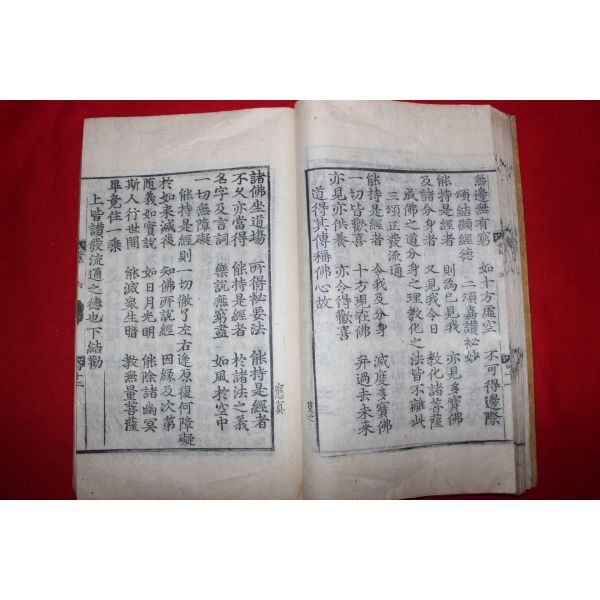 無邊無有窮 如十方虛空 不可得邊際
頌結顯經德 二頌嘉讚祕妙
能持是經者 則爲已見我 亦見多寶佛
及諸分身者 又見我今日 教化諸菩薩
成佛之道分身之理教化之法皆不離此
三頌正發流通
能持是經者 令我及分身 滅度多寶佛
一切皆歡喜 十方現在佛 幷過去未來
亦見亦供養 亦令得歡喜
道得其傳稱佛心故
諸佛坐道場 所得祕要法 能持是經者
不久亦當得 能持是經者 於諸法之義
名字及言詞 樂說無窮盡 如風於空中
一切無障礙
能持是經則一切徹了左右逢原復何障礙
於如來滅後 知佛所說經 因緣及次第
隨義如實說 如日月光明 能除諸幽冥
斯人行世間 能滅衆生暗 教無量菩薩
畢竟住一乘
上皆讚發流通之德也下結勸
應眞